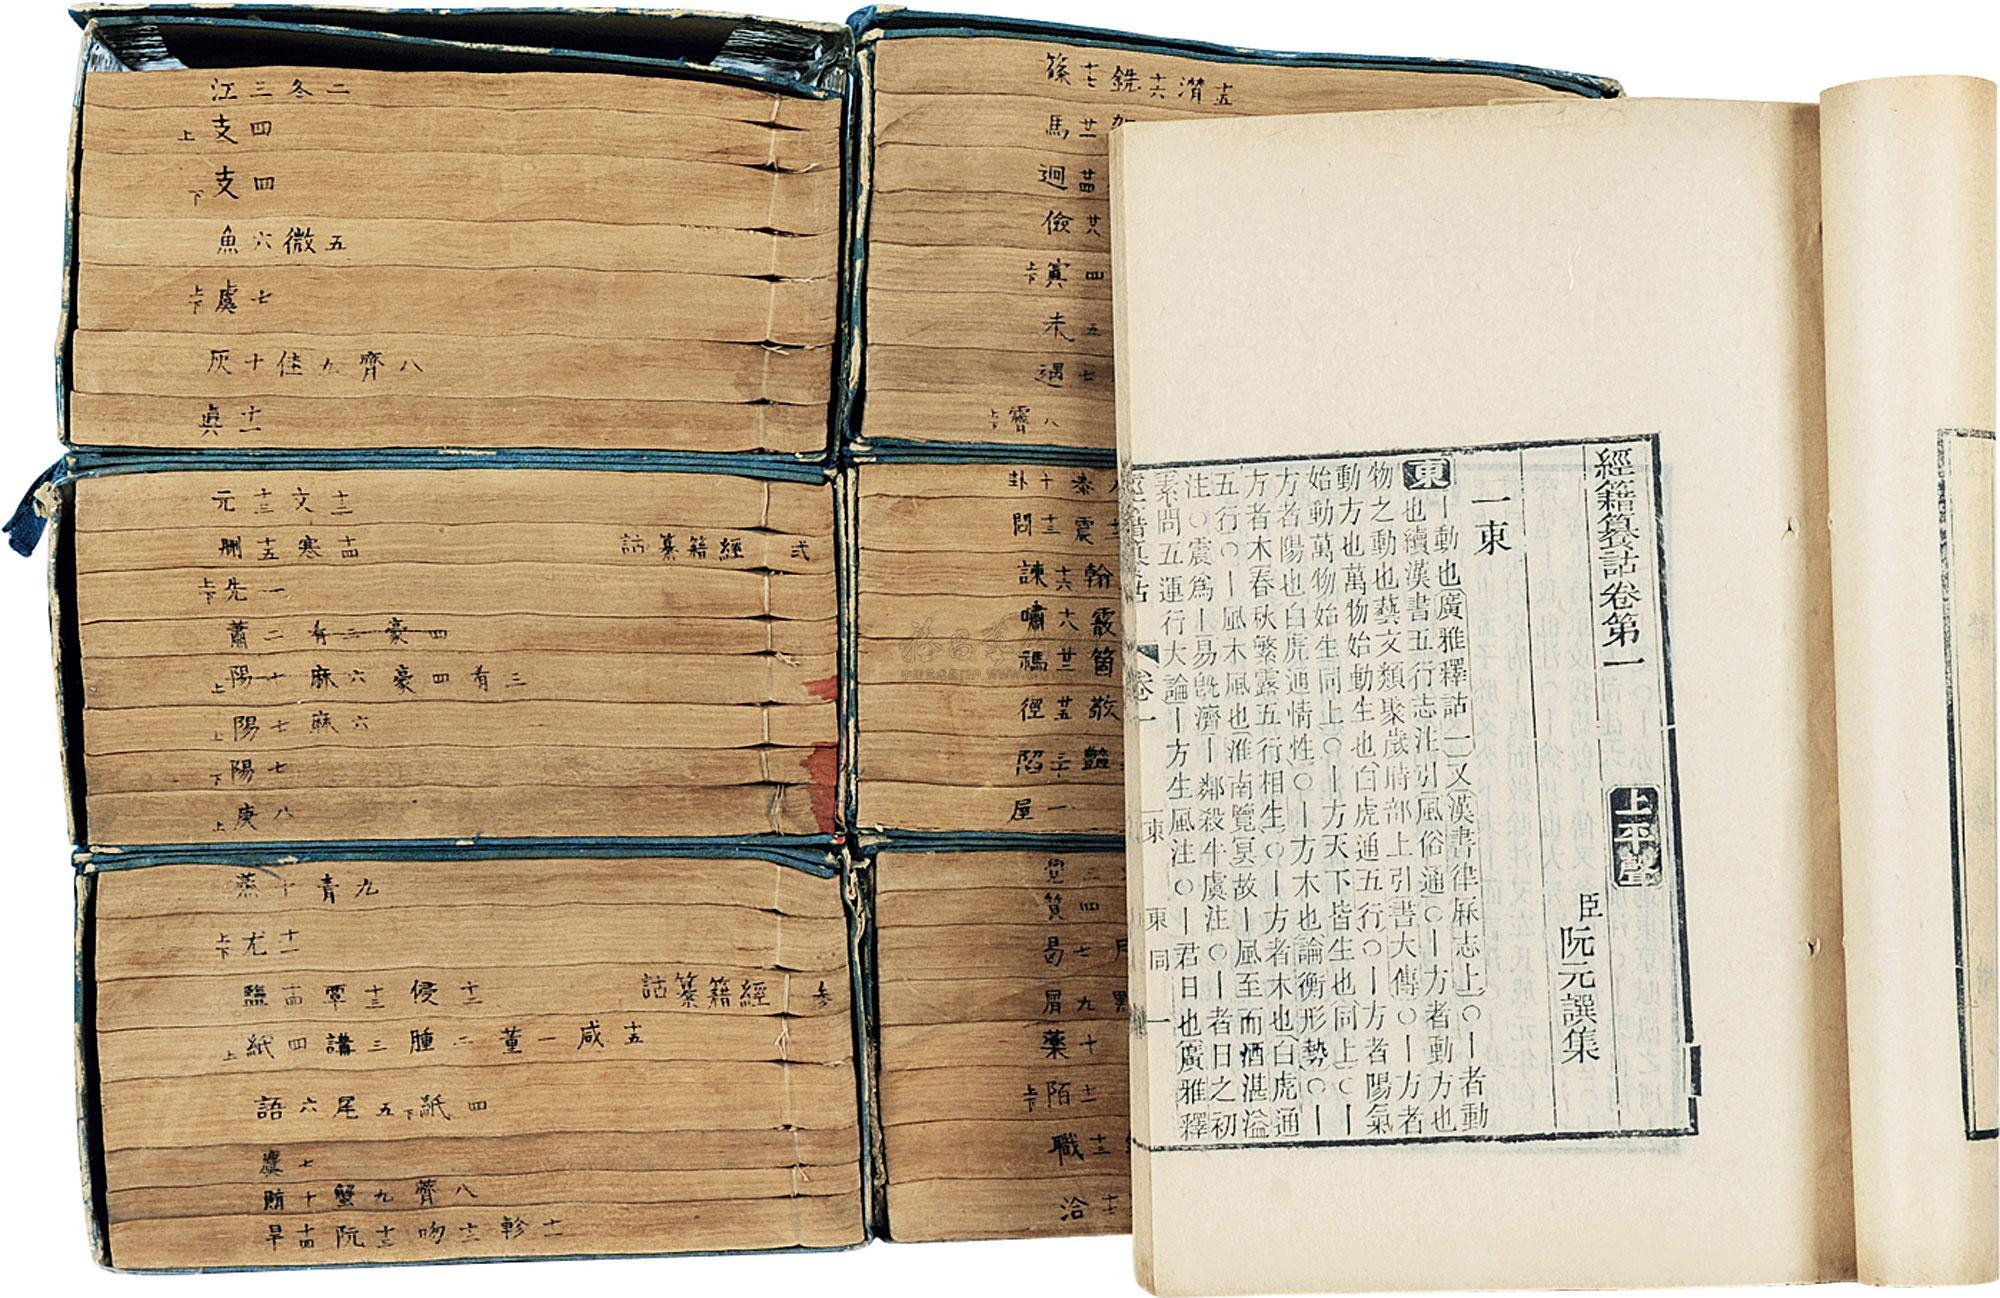 經籍籑詁卷第一
上平聲
臣阮元譔集
一東
東｜動也廣雅釋詁一又漢書律厤志上○｜者動
也續漢書五行志注引風俗通○｜方者動方也
物之動也藝文類聚歲時部上引書大傳○｜方者
動方也萬物始動生也白虎通五行○｜方者陽氣
始動萬物始生同上○｜方天下皆生也同上○｜
方者陽也白虎通情性○｜方木也論衡形勢○｜
方者木春秋繁露五行相生○｜方者木也白虎通
五行○｜風木風也淮南覽冥故｜風至而酒湛溢
注○震爲｜易旣濟｜鄰殺牛虞注○｜者日之初
素問五運行大論｜方生風注○｜君日也廣雅釋
卷一
一東
東同
一
江三冬二
上支四
下支四
魚六微五
上下虞七
灰十佳九齊八
眞十一
元十三文十二
刪十五寒十四
經籍籑詁 弍
上下先一
蕭二肴三豪四
上陽十麻六豪四肴三
上陽七麻六
下陽七
上庚八
蒸十青九
上下尤十一
鹽十四覃十三侵十二
經籍籑詁 参
上紙四講三腫二董一咸十五
語六尾五下紙四
麌七
賄十蟹九薺八
旱十四阮十三吻十二軫十一
篠十七銑十六潸十五
馬廿一
迥廿四
儉廿八
上下寘四
未五
遇七
上下霽八
卦十泰
問十三震十二
諫十六翰
嘯十八霰
禡廿二箇
徑廿五敬
陷三十豔
屋一
覺三
質四
曷七月
屑九黠
藥十
上下陌十一
職十三
洽十七